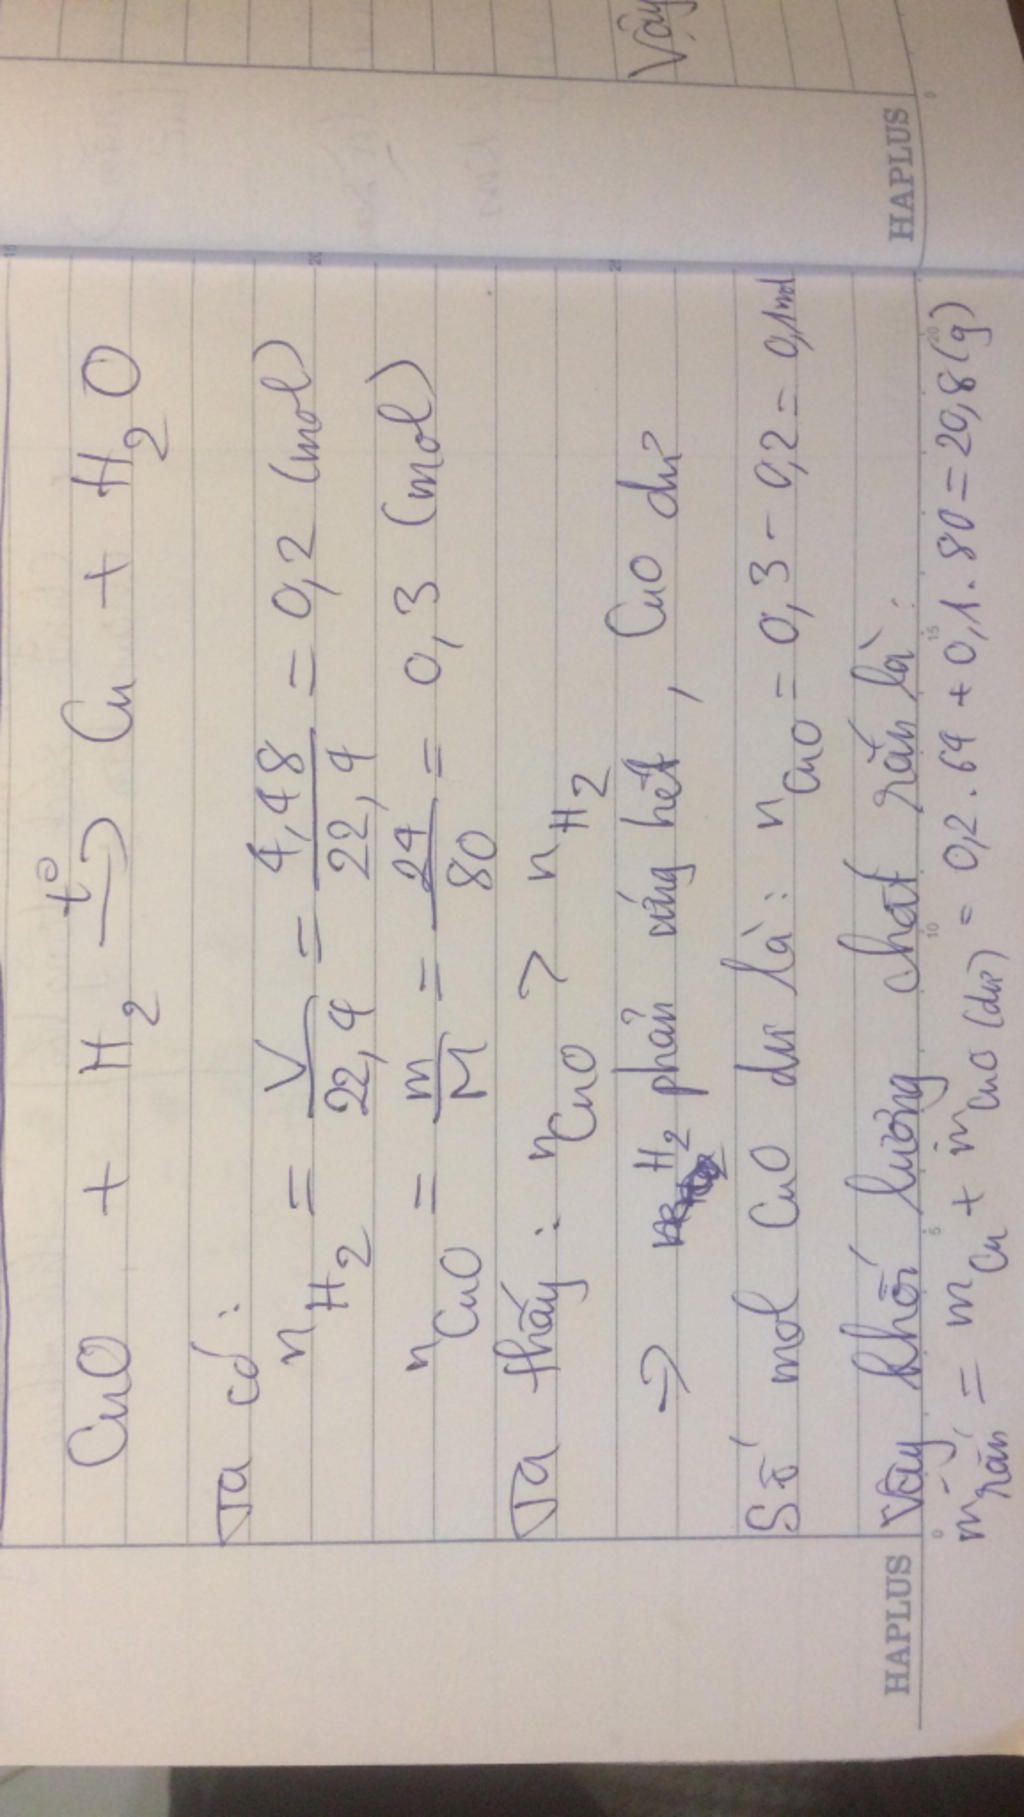 CuO + H₂ →(t°) Cu + H₂O
Ta có:
n_H₂ = V/22,4 = 4,48/22,4 = 0,2 (mol)
n_CuO = m/M = 24/80 = 0,3 (mol)
Ta thấy: n_CuO > n_H₂
=> H₂ phản ứng hết, CuO dư
Số mol CuO dư là: n_CuO = 0,3 - 0,2 = 0,1 mol
Vậy khối lượng chất rắn là:
m_rắn = m_Cu + m_CuO (dư) = 0,2 . 64 + 0,1 . 80 = 20,8 (g)
HAPLUS
HAPLUS
Vậy